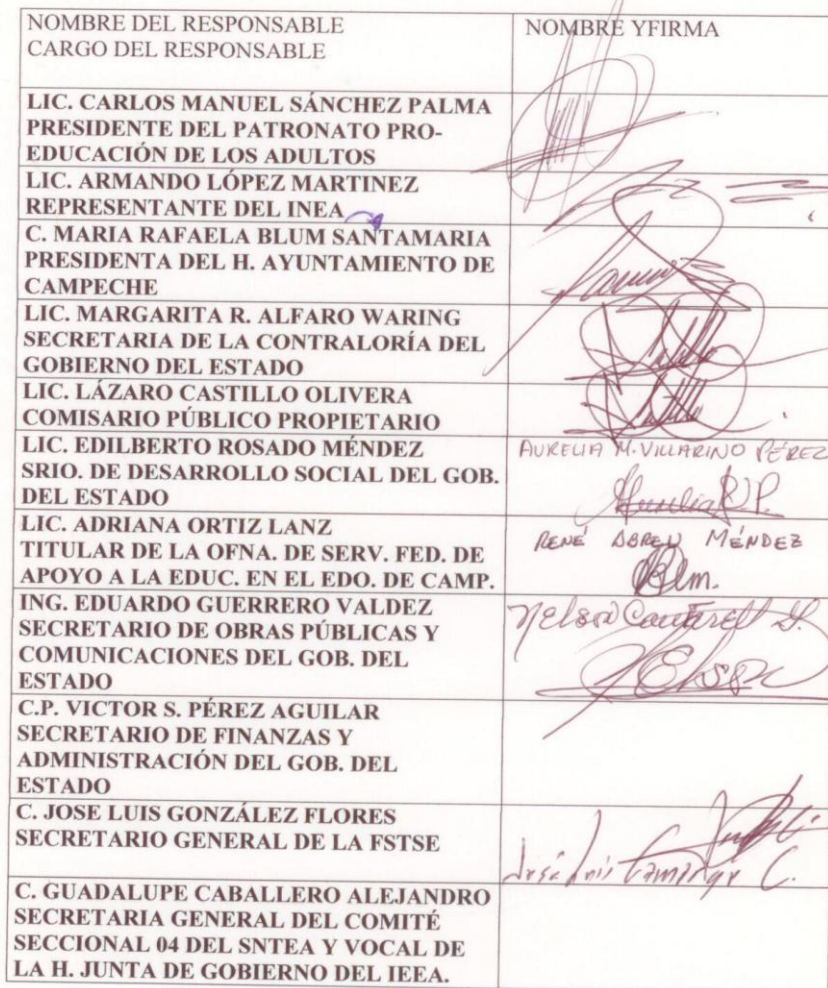 NOMBRE DEL RESPONSABLE
CARGO DEL RESPONSABLE
NOMBRE YFIRMA
LIC. CARLOS MANUEL SÁNCHEZ PALMA
PRESIDENTE DEL PATRONATO PRO-
EDUCACIÓN DE LOS ADULTOS
LIC. ARMANDO LÓPEZ MARTINEZ
REPRESENTANTE DEL INEA
C. MARIA RAFAELA BLUM SANTAMARIA
PRESIDENTA DEL H. AYUNTAMIENTO DE
CAMPECHE
LIC. MARGARITA R. ALFARO WARING
SECRETARIA DE LA CONTRALORÍA DEL
GOBIERNO DEL ESTADO
LIC. LÁZARO CASTILLO OLIVERA
COMISARIO PÚBLICO PROPIETARIO
LIC. EDILBERTO ROSADO MÉNDEZ
SRIO. DE DESARROLLO SOCIAL DEL GOB.
DEL ESTADO
AURELIA M. VILLARINO PÉREZ
LIC. ADRIANA ORTIZ LANZ
TITULAR DE LA OFNA. DE SERV. FED. DE
APOYO A LA EDUC. EN EL EDO. DE CAMP.
RENÉ ABREU MÉNDEZ
ING. EDUARDO GUERRERO VALDEZ
SECRETARIO DE OBRAS PÚBLICAS Y
COMUNICACIONES DEL GOB. DEL
ESTADO
Nelson Cantarell
C.P. VICTOR S. PÉREZ AGUILAR
SECRETARIO DE FINANZAS Y
ADMINISTRACIÓN DEL GOB. DEL
ESTADO
C. JOSE LUIS GONZÁLEZ FLORES
SECRETARIO GENERAL DE LA FSTSE
José Luis C.
C. GUADALUPE CABALLERO ALEJANDRO
SECRETARIA GENERAL DEL COMITÉ
SECCIONAL 04 DEL SNTEA Y VOCAL DE
LA H. JUNTA DE GOBIERNO DEL IEEA.